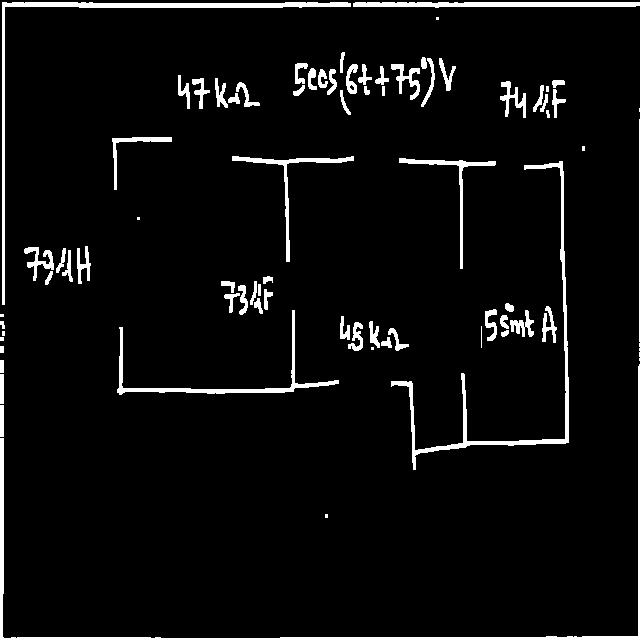 47 kΩ
5cos(6t+75°)V
74 μF
79 μH
73 μF
48 kΩ
5 sint A